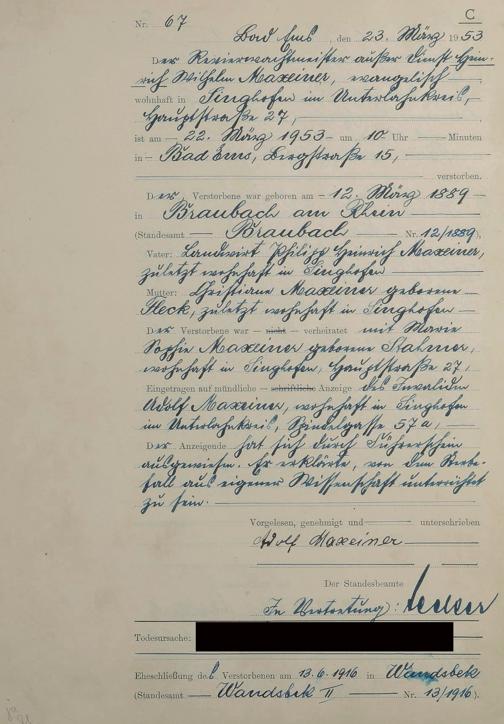 C
Nr. 67
Bad Ems, den 23. März 1953
Der Revierwachtmeister außer Dienst Hein-
rich Wilhelm Maxeiner, evangelisch
wohnhaft in Singhofen im Unterlahnkreis,
Hauptstraße 27,
ist am 22. März 1953 um 10 Uhr Minuten
in Bad Ems, Bergstraße 15,
verstorben.
Der Verstorbene war geboren am 12. März 1889
in Braubach am Rhein
(Standesamt Braubach Nr. 12/1889),
Vater: Landwirt Philipp Heinrich Maxeiner,
zuletzt wohnhaft in Singhofen
Mutter: Christiane Maxeiner geborene
Heck, zuletzt wohnhaft in Singhofen
Der Verstorbene war nicht verheiratet mit Marie
Sophie Maxeiner geborene
wohnhaft in Singhofen, Hauptstraße 27,
Eingetragen auf mündliche schriftliche Anzeige des Invaliden
Adolf Maxeiner, wohnhaft in Singhofen
im Unterlahnkreis, Spindelgasse 57a,
Der Anzeigende hat sich durch Führerschein
ausgewiesen. Er erklärte, von dem Sterbe-
fall aus eigener Wissenschaft unterrichtet
zu sein.
Vorgelesen, genehmigt und unterschrieben
Adolf Maxeiner
Der Standesbeamte
In Vertretung:
Todesursache:
Eheschließung des Verstorbenen am 13.6.1916 in Wandsbek
(Standesamt Wandsbek II Nr. 13/1916).